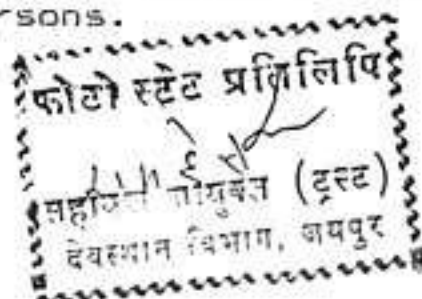 rsons.
फोटो स्टेट प्रतिलिपि
सहायक आयुक्त (ट्रस्ट)
देवस्थान विभाग, जयपुर